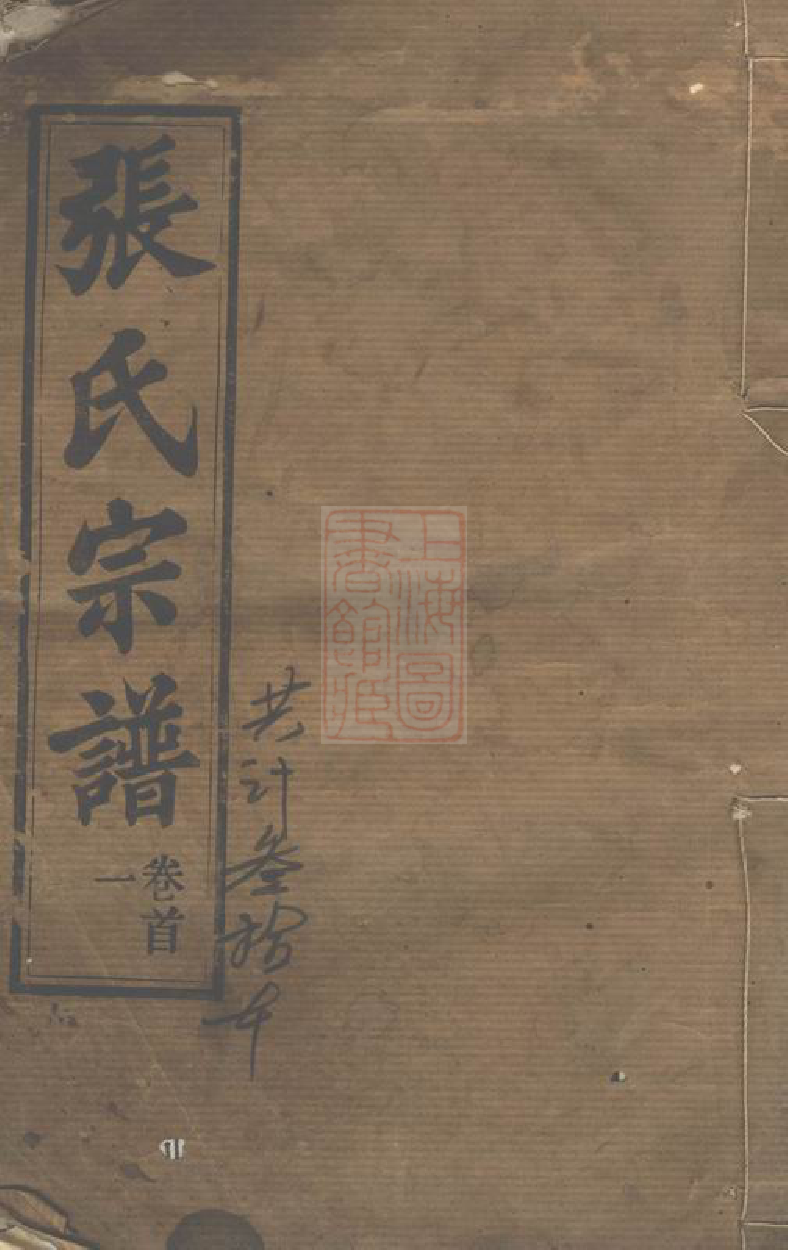 張氏宗譜
卷首
一
共計叁拾本
上海圖
書館藏